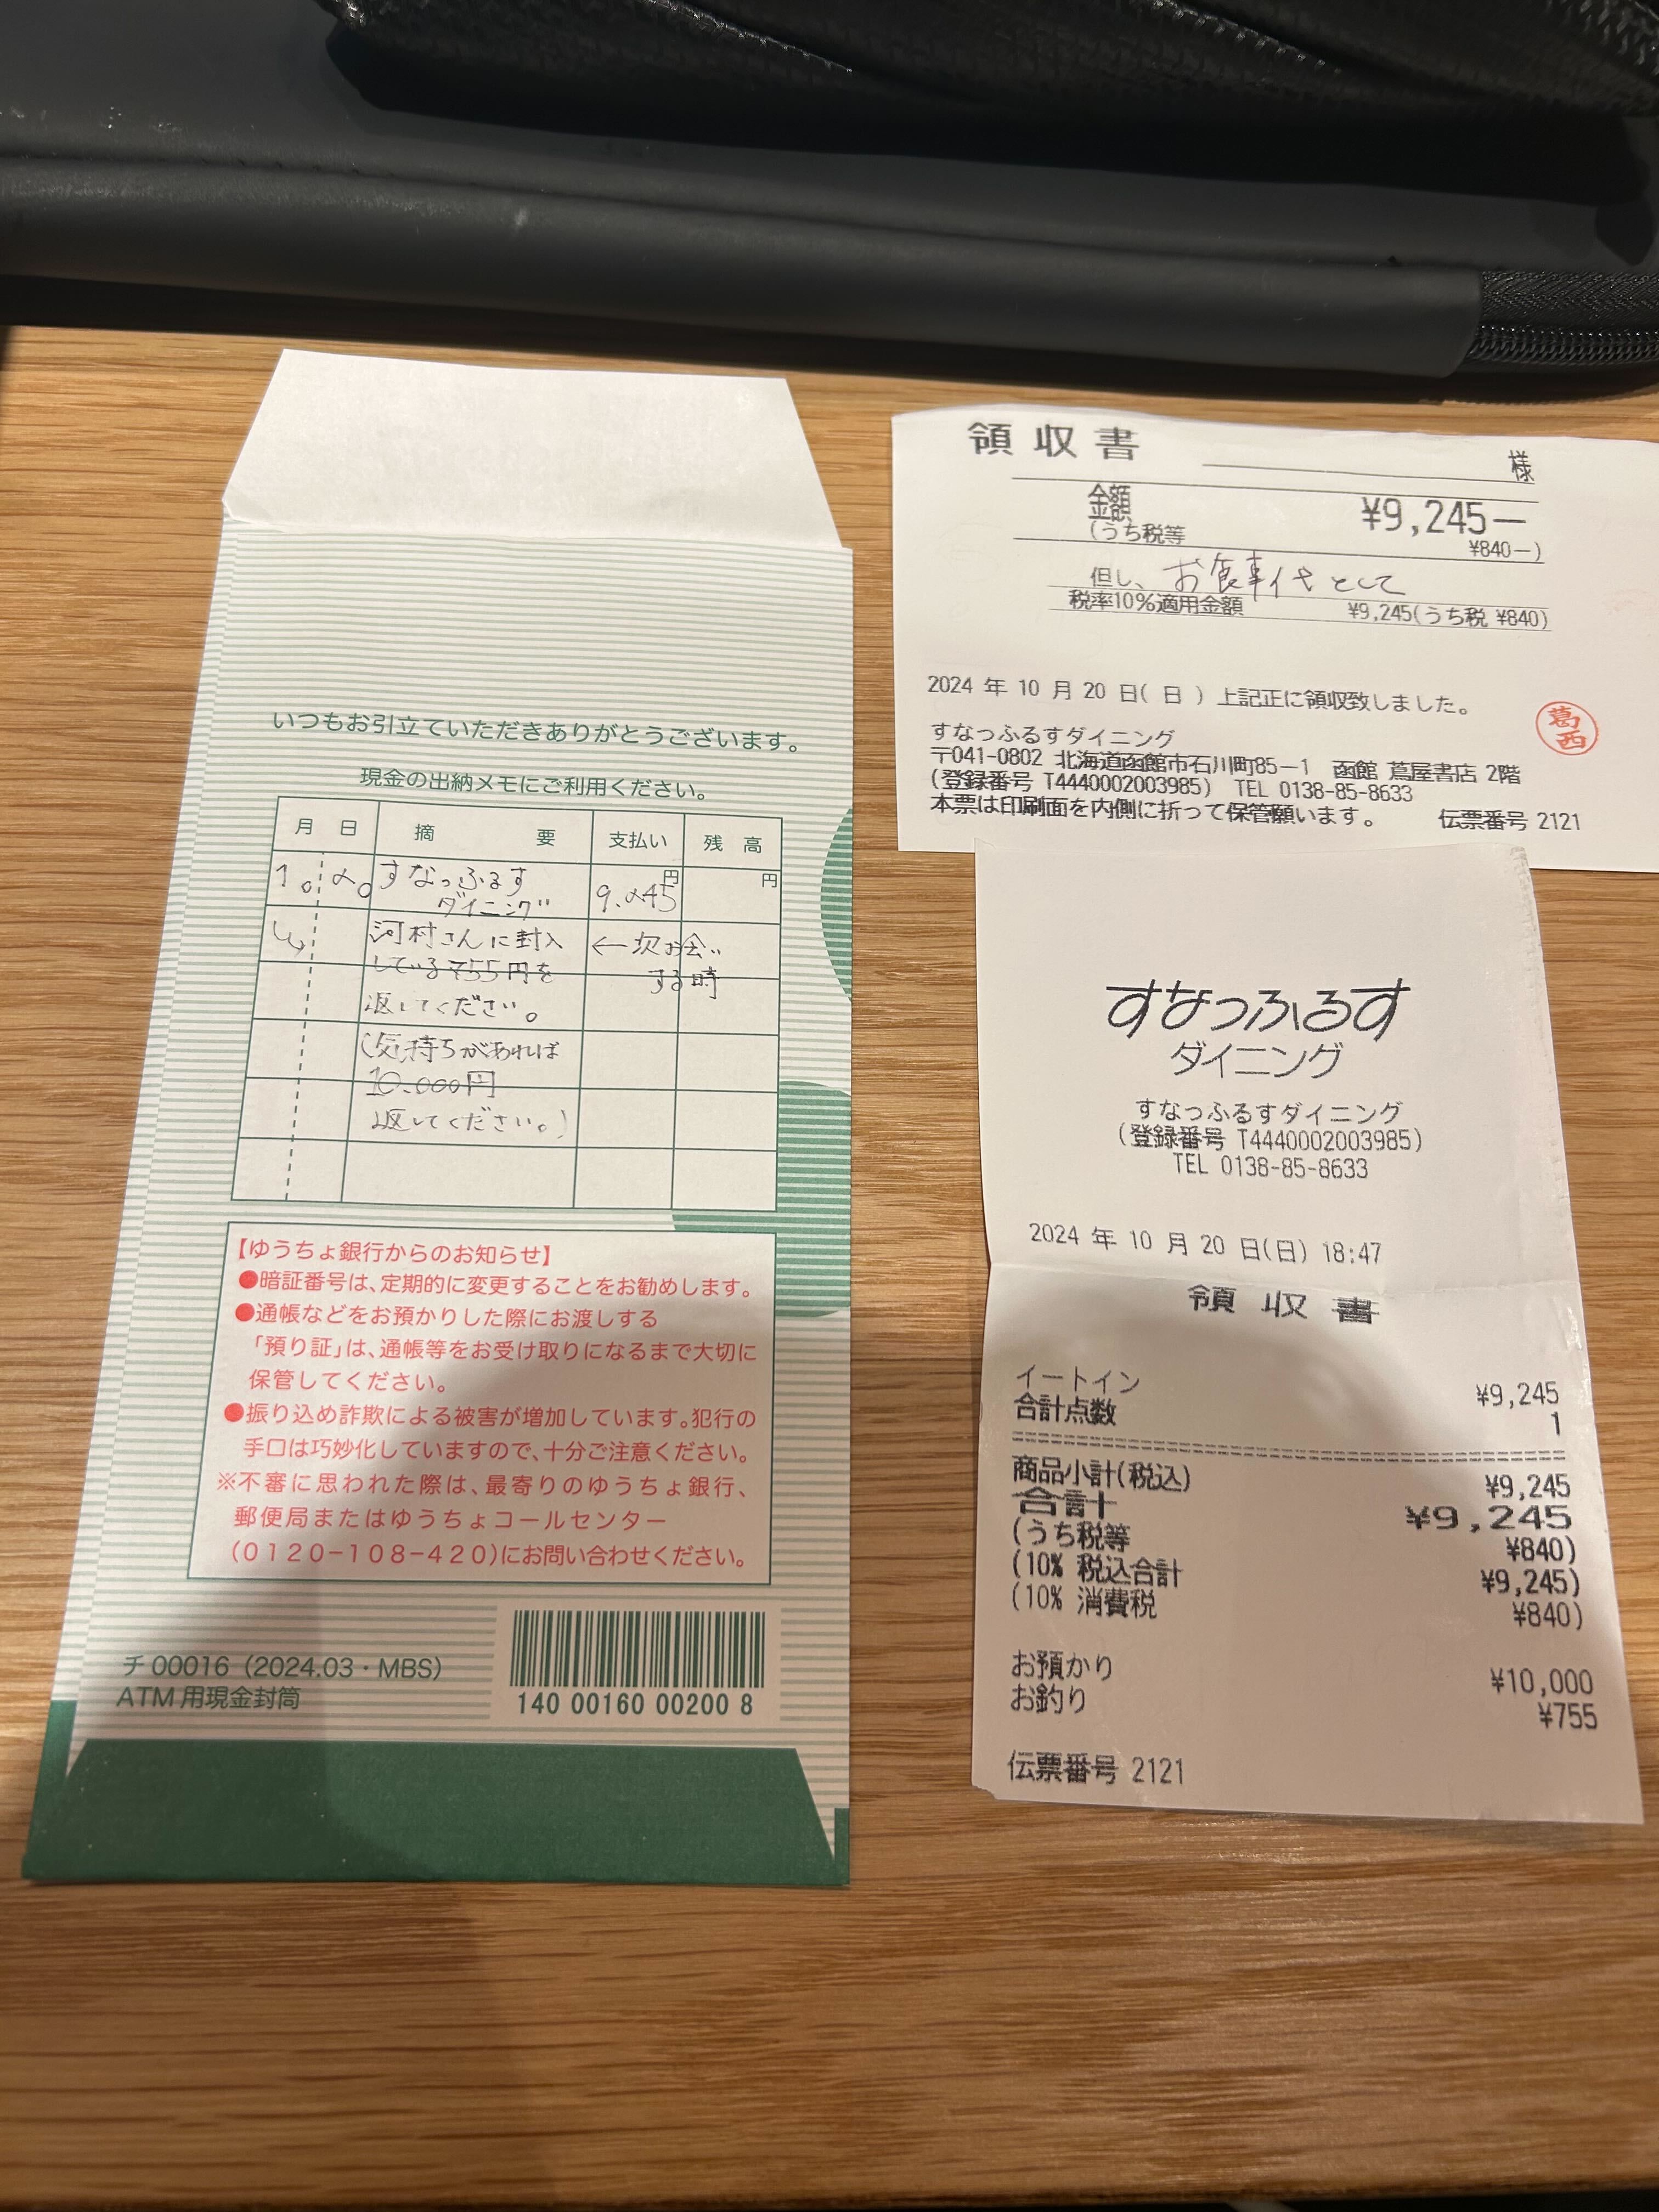 いつもお引立ていただきありがとうございます。
現金の出納メモにご利用ください。
月 日 摘 要 支払い 残 高
円 円
10 20 すなっふるす 9.245
ダイニング
↳ 河村さんに封入 ←次お会い
している755円を する時
返してください。
(気持ちがあれば
10.000円
返してください。)
【ゆうちょ銀行からのお知らせ】
●暗証番号は、定期的に変更することをお勧めします。
●通帳などをお預かりした際にお渡しする
「預り証」は、通帳等をお受け取りになるまで大切に
保管してください。
●振り込め詐欺による被害が増加しています。犯行の
手口は巧妙化していますので、十分ご注意ください。
※不審に思われた際は、最寄りのゆうちょ銀行、
郵便局またはゆうちょコールセンター
(0120-108-420)にお問い合わせください。
チ00016(2024.03・MBS)
ATM用現金封筒
140 00160 00200 8
領収書
様
金額 ¥9,245-
(うち税等 ¥840-)
但し、お食事代として
税率10%適用金額 ¥9,245(うち税 ¥840)
2024 年 10 月 20 日( 日 ) 上記正に領収致しました。
葛西
すなっふるすダイニング
〒041-0802 北海道函館市石川町85-1 函館 蔦屋書店 2階
(登録番号 T4440002003985) TEL 0138-85-8633
本票は印刷面を内側に折って保管願います。 伝票番号 2121
すなっふるす
ダイニング
すなっふるすダイニング
(登録番号 T4440002003985)
TEL 0138-85-8633
2024 年 10 月 20 日(日) 18:47
領 収 書
イートイン ¥9,245
合計点数 1
商品小計(税込) ¥9,245
合計 ¥9,245
(うち税等 ¥840)
(10% 税込合計 ¥9,245)
(10% 消費税 ¥840)
お預かり ¥10,000
お釣り ¥755
伝票番号 2121